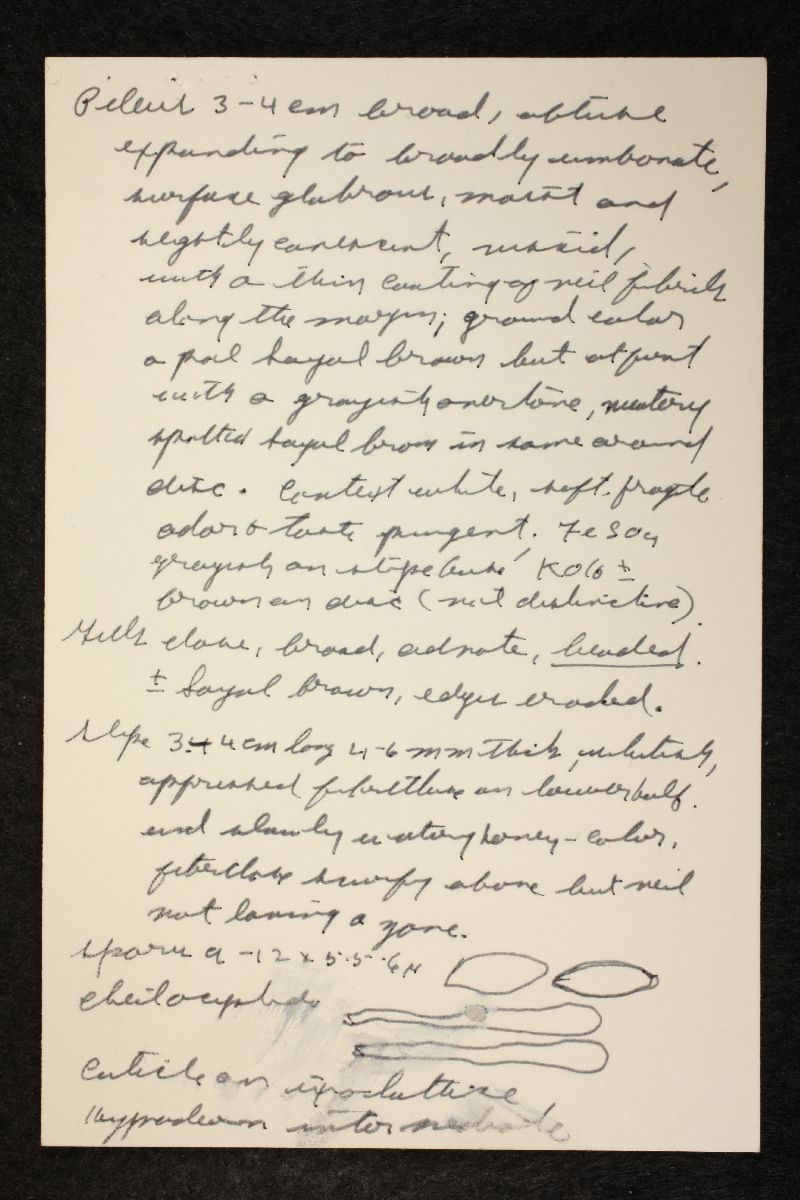 Pileus 3-4 cm broad, obtuse
expanding to broadly umbonate,
surface glabrous, moist and
slightly canescent, viscid,
with a thin coating of veil fibrils
along the margin; ground color
a pale sayal brown but at first
with a grayish overtone, watery
spotted sayal brown in some around
disc. Context white, soft, fragile
odor & taste pungent. FeSO4
grayish on stipe base KOH ±
brown on disc (not distinctive).
Gills close, broad, adnate, beaded.
± Sayal brown, edges eroded.
Stipe 3-4 cm long 4-6 mm thick, whitish,
appressed fibrillose on lower half.
and slowly watery honey-color,
fibrillose scurfy above but veil
not leaving a zone.
Spores 9-12 x 5.5-6 μ
cheilocystidia
Cuticle an ixocutis
hypoderm intermediate